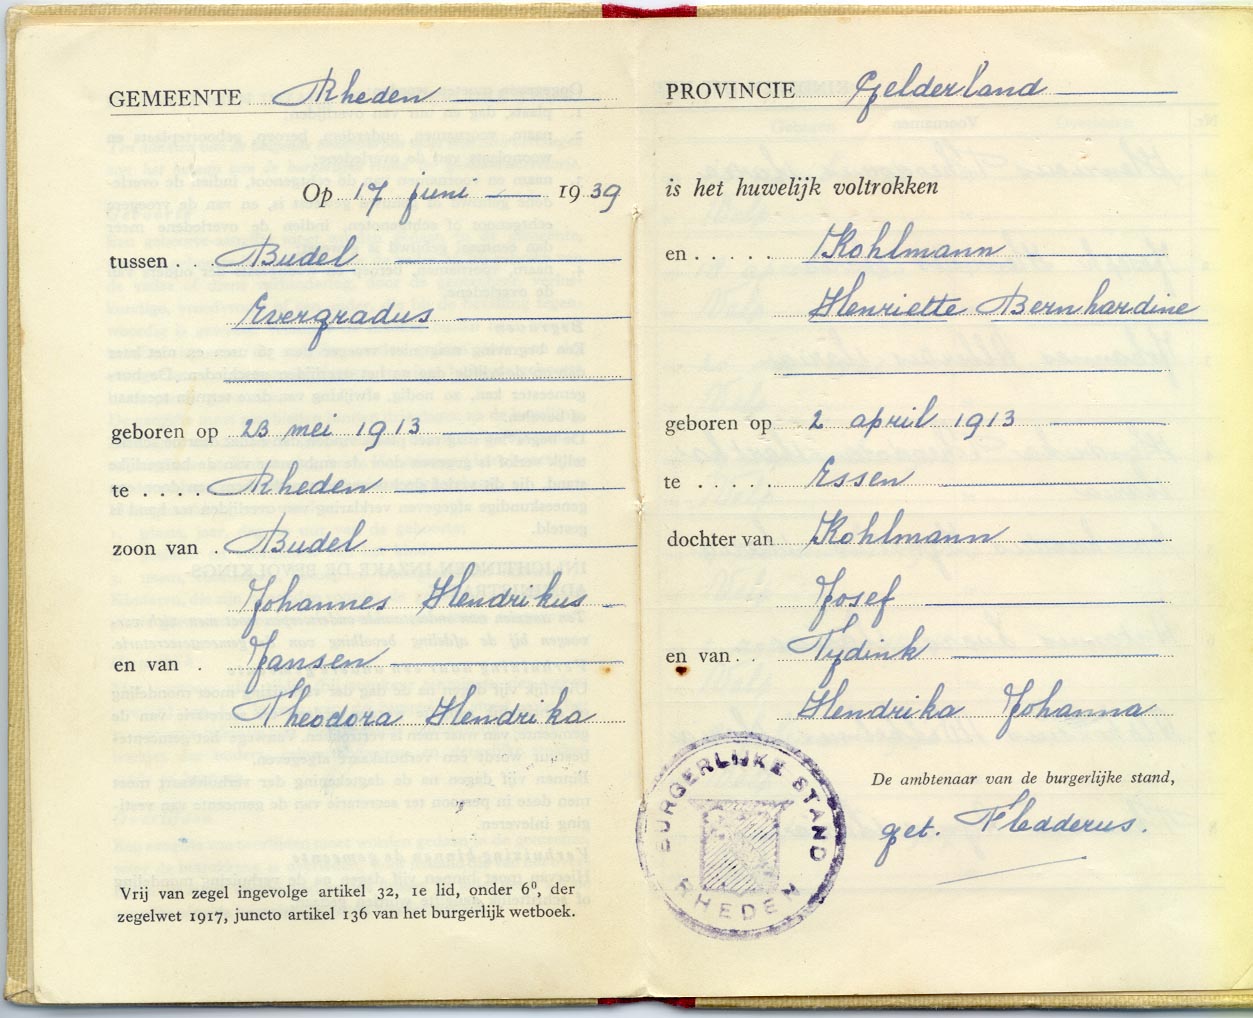 GEMEENTE Rheden
Op 17 juni 1939
tussen . . Budel
Evergradus
geboren op 23 mei 1913
te . . . . Rheden
zoon van . Budel
Johannes Hendrikus
en van . Jansen
Theodora Hendrika
Vrij van zegel ingevolge artikel 32, 1e lid, onder 6⁰, der
zegelwet 1917, juncto artikel 136 van het burgerlijk wetboek.
PROVINCIE Gelderland
is het huwelijk voltrokken
en . . . . . Kohlmann
Henriette Bernhardine
geboren op 2 april 1913
te . . . . . Essen
dochter van Kohlmann
Josef
en van . . Tydink
Hendrika Johanna
De ambtenaar van de burgerlijke stand,
get. Fledderus.
BURGERLIJKE STAND
RHEDEN